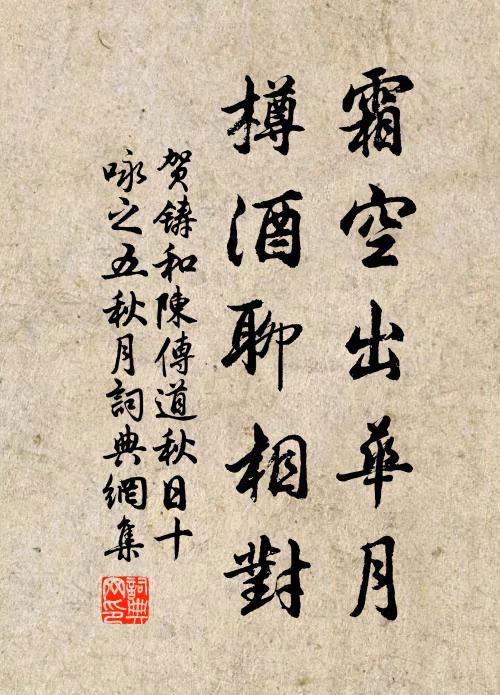 霜空出華月
樽酒聊相對
賀鑄和陳傳道秋日十
咏之五秋月詞典網集
詞典网印